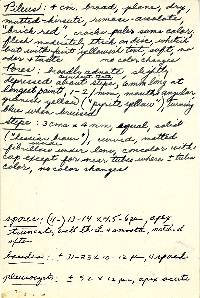 Pileus: 4 cm. broad, plane, dry,
matted-hirsute, rimose-areolate,
"brick red", cracks paler some color,
flesh moderately thick on disc, whitish
but with faint yellowish tint, soft, no
odor + taste no color changes
Pores: broadly adnate slightly
depressed around stipe, ample at
longest point, 1-2/mm, mouths angular
greenish yellow ("pyrite yellow"), turning
blue when bruised
stipe: 3 cms x 4 mm, equal, solid
("Hessian brown"), curved, matted
fibrillose under lens, concolor with
cap except for near tube where = tube
color, no color changes
spores: (11-) 13-14 x 4.5-6 µm, apex
truncate, both thick + smooth, matted
often
basidia: ± 23-25 x 10-12 µm, 4 spored
pleurocysts: ± x 12 µm, apex acute